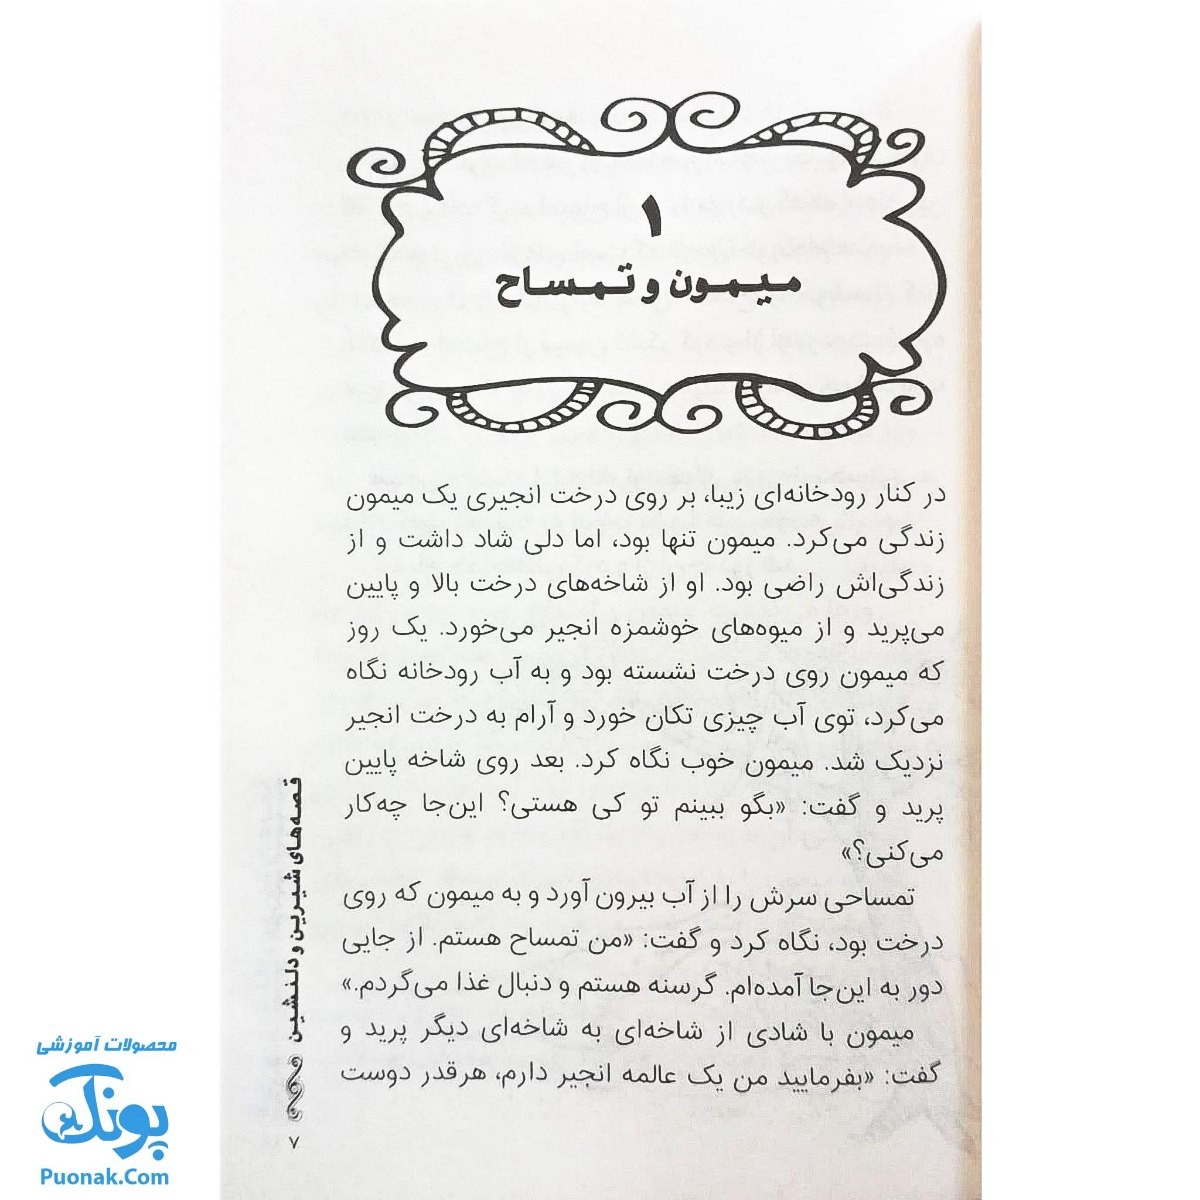 ۱
میمون و تمساح
در کنار رودخانه‌ای زیبا، بر روی درخت انجیری یک میمون
زندگی می‌کرد. میمون تنها بود، اما دلی شاد داشت و از
زندگی‌اش راضی بود. او از شاخه‌های درخت بالا و پایین
می‌پرید و از میوه‌های خوشمزه انجیر می‌خورد. یک روز
که میمون روی درخت نشسته بود و به آب رودخانه نگاه
می‌کرد، توی آب چیزی تکان خورد و آرام به درخت انجیر
نزدیک شد. میمون خوب نگاه کرد. بعد روی شاخه پایین
پرید و گفت: «بگو ببینم تو کی هستی؟ این‌جا چه‌کار
می‌کنی؟»
تمساحی سرش را از آب بیرون آورد و به میمون که روی
درخت بود، نگاه کرد و گفت: «من تمساح هستم. از جایی
دور به این‌جا آمده‌ام. گرسنه هستم و دنبال غذا می‌گردم.»
میمون با شادی از شاخه‌ای به شاخه‌ای دیگر پرید و
گفت: «بفرمایید من یک عالمه انجیر دارم، هرقدر دوست
قصه‌های شیرین و دلنشین
۷
محصولات آموزشی
پونک
Puonak.Com